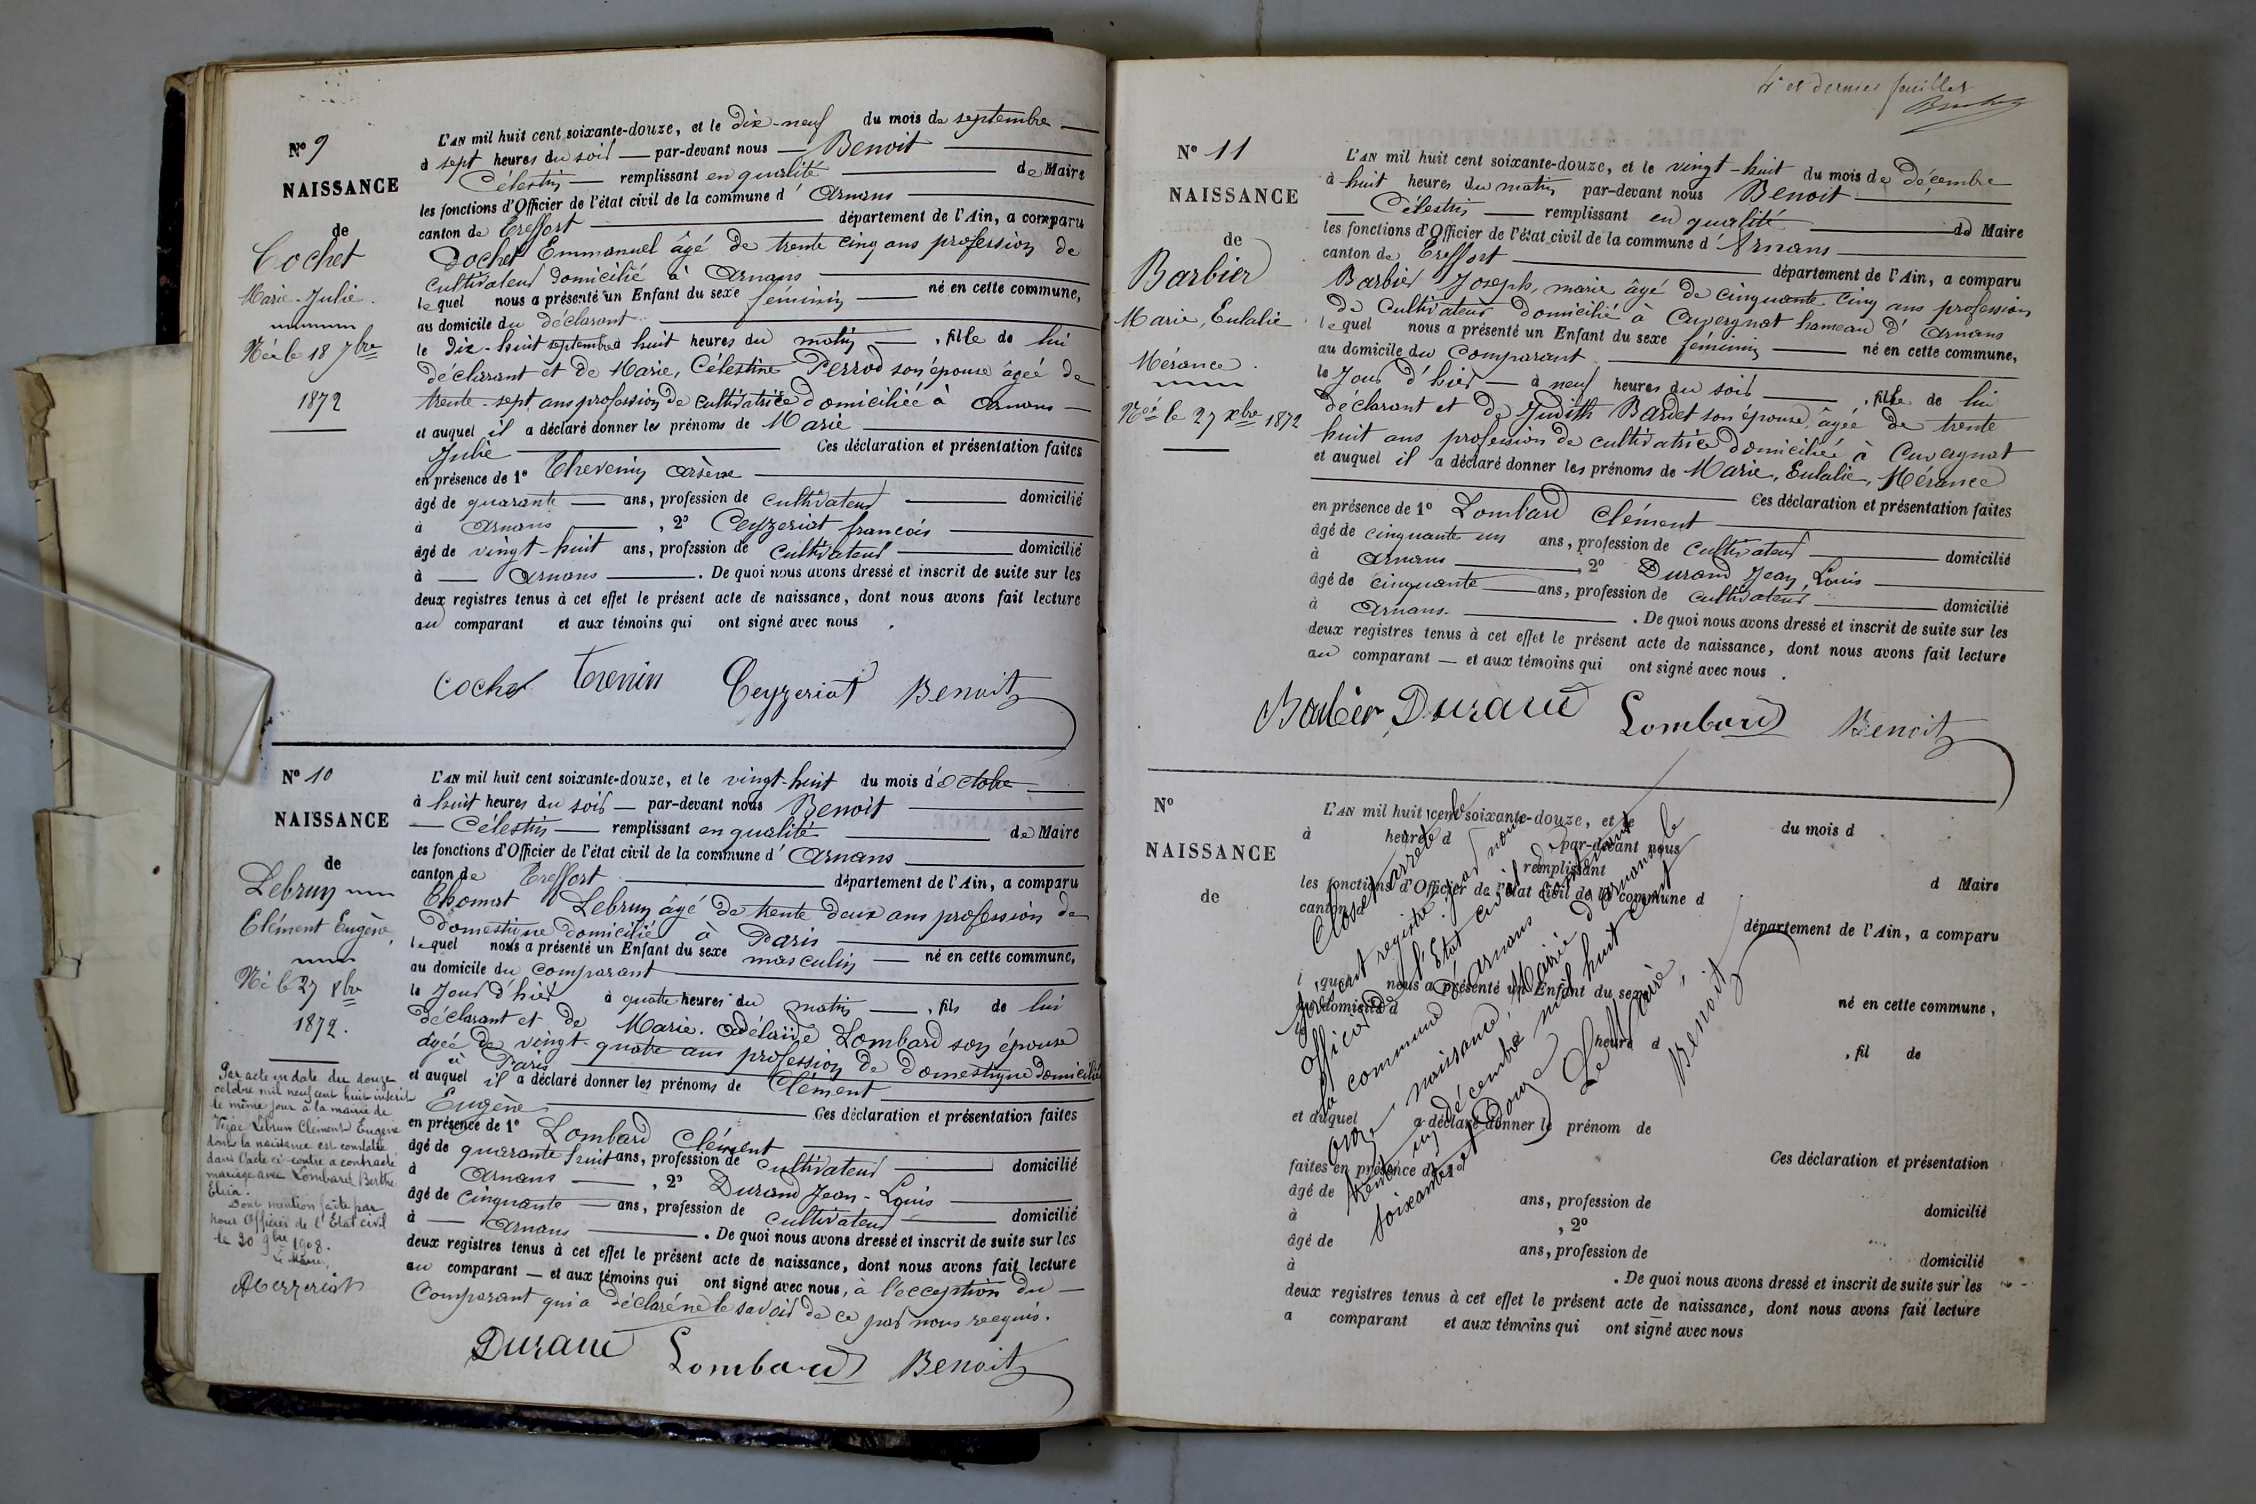 N° 9
NAISSANCE
de
Cochet
Marie-Julie.
Née le 18 7bre
1872
L'AN mil huit cent soixante-douze, et le dix-neuf du mois de septembre
à sept heures du soir par-devant nous Benoit
Célestin remplissant en qualité de Maire
les fonctions d'Officier de l'état civil de la commune d'Arnans
canton de Treffort département de l'Ain, a comparu
Cochet Emmanuel âgé de trente cinq ans profession de
cultivateur domicilié à Arnans
lequel nous a présenté un Enfant du sexe féminin né en cette commune,
au domicile du déclarant
le dix-huit septembre à huit heures du matin, fille de lui
déclarant et de Marie, Célestine Perrod son épouse âgée de
trente-sept ans profession de cultivatrice domiciliée à Arnans
et auquel il a déclaré donner les prénoms de Marie
Julie Ces déclaration et présentation faites
en présence de 1° Thevenin Arsène
âgé de quarante ans, profession de cultivateur domicilié
à Arnans, 2° Ceyzeriat françois
âgé de vingt-huit ans, profession de cultivateur domicilié
à Arnans. De quoi nous avons dressé et inscrit de suite sur les
deux registres tenus à cet effet le présent acte de naissance, dont nous avons fait lecture
au comparant et aux témoins qui ont signé avec nous.
Cochet Tevenin Ceyzeriat Benoit
N° 10
NAISSANCE
de
Lebrun
Clément Eugène,
Né le 27 8bre
1872.
Par acte en date du douze
octobre mil neuf cent huit inscrit
le même jour à la mairie de
Lebrun Clément Eugène
dont la naissance est constatée
dans l'acte ci-contre a contracté
mariage avec Lombard Berthe
Elisa.
Dont mention faite par
nous Officier de l'Etat civil
le 30 9bre 1908.
Le Maire,
L'AN mil huit cent soixante-douze, et le vingt-huit du mois d'octobre
à huit heures du soir par-devant nous Benoit
Célestin remplissant en qualité de Maire
les fonctions d'Officier de l'état civil de la commune d'Arnans
canton de Treffort département de l'Ain, a comparu
Thomas Lebrun âgé de trente deux ans profession de
domestique domicilié à Paris
lequel nous a présenté un Enfant du sexe masculin né en cette commune,
au domicile du comparant
le jour d'hier à quatre heures du matin, fils de lui
déclarant et de Marie. Adélaïde Lombard son épouse
âgée de vingt-quatre ans profession de domestique domiciliée
à Paris
et auquel il a déclaré donner les prénoms de Clément
Eugène Ces déclaration et présentation faites
en présence de 1° Lombard Clément
âgé de quarante huit ans, profession de cultivateur domicilié
à Arnans, 2° Durand Jean-Louis
âgé de cinquante ans, profession de cultivateur domicilié
à Arnans. De quoi nous avons dressé et inscrit de suite sur les
deux registres tenus à cet effet le présent acte de naissance, dont nous avons fait lecture
au comparant et aux témoins qui ont signé avec nous, à l'ecception du
comparant qui a déclaré ne le savoir de ce par nous reequis.
Durand Lombard Benoit
4e et dernier feuillet
N° 11
NAISSANCE
de
Barbier
Marie, Eulalie
Mérance.
Née le 27 xbre 1872
L'AN mil huit cent soixante-douze, et le vingt-huit du mois de décembre
à huit heures du matin par-devant nous Benoit
Célestin remplissant en qualité de Maire
les fonctions d'Officier de l'état civil de la commune d'Arnans
canton de Treffort département de l'Ain, a comparu
Barbier Joseph, marie âgé de cinquante-cinq ans profession
de cultivateur domicilié à Cuvergnat hameau d'Arnans
lequel nous a présenté un Enfant du sexe féminin né en cette commune,
au domicile du comparant
le jour d'hier à neuf heures du soir, fille de lui
déclarant et de Judith Bardet son épouse, âgée de trente
huit ans profession de cultivatrice domiciliée à Cuvergnat
et auquel il a déclaré donner les prénoms de Marie, Eulalie, Mérance
Ces déclaration et présentation faites
en présence de 1° Lombard Clément
âgé de cinquante un ans, profession de cultivateur domicilié
à Arnans, 2° Durand Jean, Louis
âgé de cinquante ans, profession de cultivateur domicilié
à Arnans. De quoi nous avons dressé et inscrit de suite sur les
deux registres tenus à cet effet le présent acte de naissance, dont nous avons fait lecture
au comparant et aux témoins qui ont signé avec nous.
Barbier Durand Lombard Benoit
N°
NAISSANCE
de
L'AN mil huit cent soixante-douze, et le du mois d
à heure d par-devant nous
remplissant d Maire
les fonctions d'Officier de l'état civil de la commune d
canton d département de l'Ain, a comparu
l quel nous a présenté un Enfant du sexe né en cette commune,
au domicile d
heure d, fil de
et auquel a déclaré donner le prénom de
Ces déclaration et présentation
faites en présence de 1°
âgé de ans, profession de domicilié
à, 2°
âgé de ans, profession de domicilié
à. De quoi nous avons dressé et inscrit de suite sur les
deux registres tenus à cet effet le présent acte de naissance, dont nous avons fait lecture
a comparant et aux témoins qui ont signé avec nous
Clos et arrêté le
présent registre par nous
officier de l'Etat civil de
la commune d'Arnans contenant
onze naissance, Mairie d'Arnans le
trente un décembre mil huit cent
soixante et douze
Le Maire,
Benoit